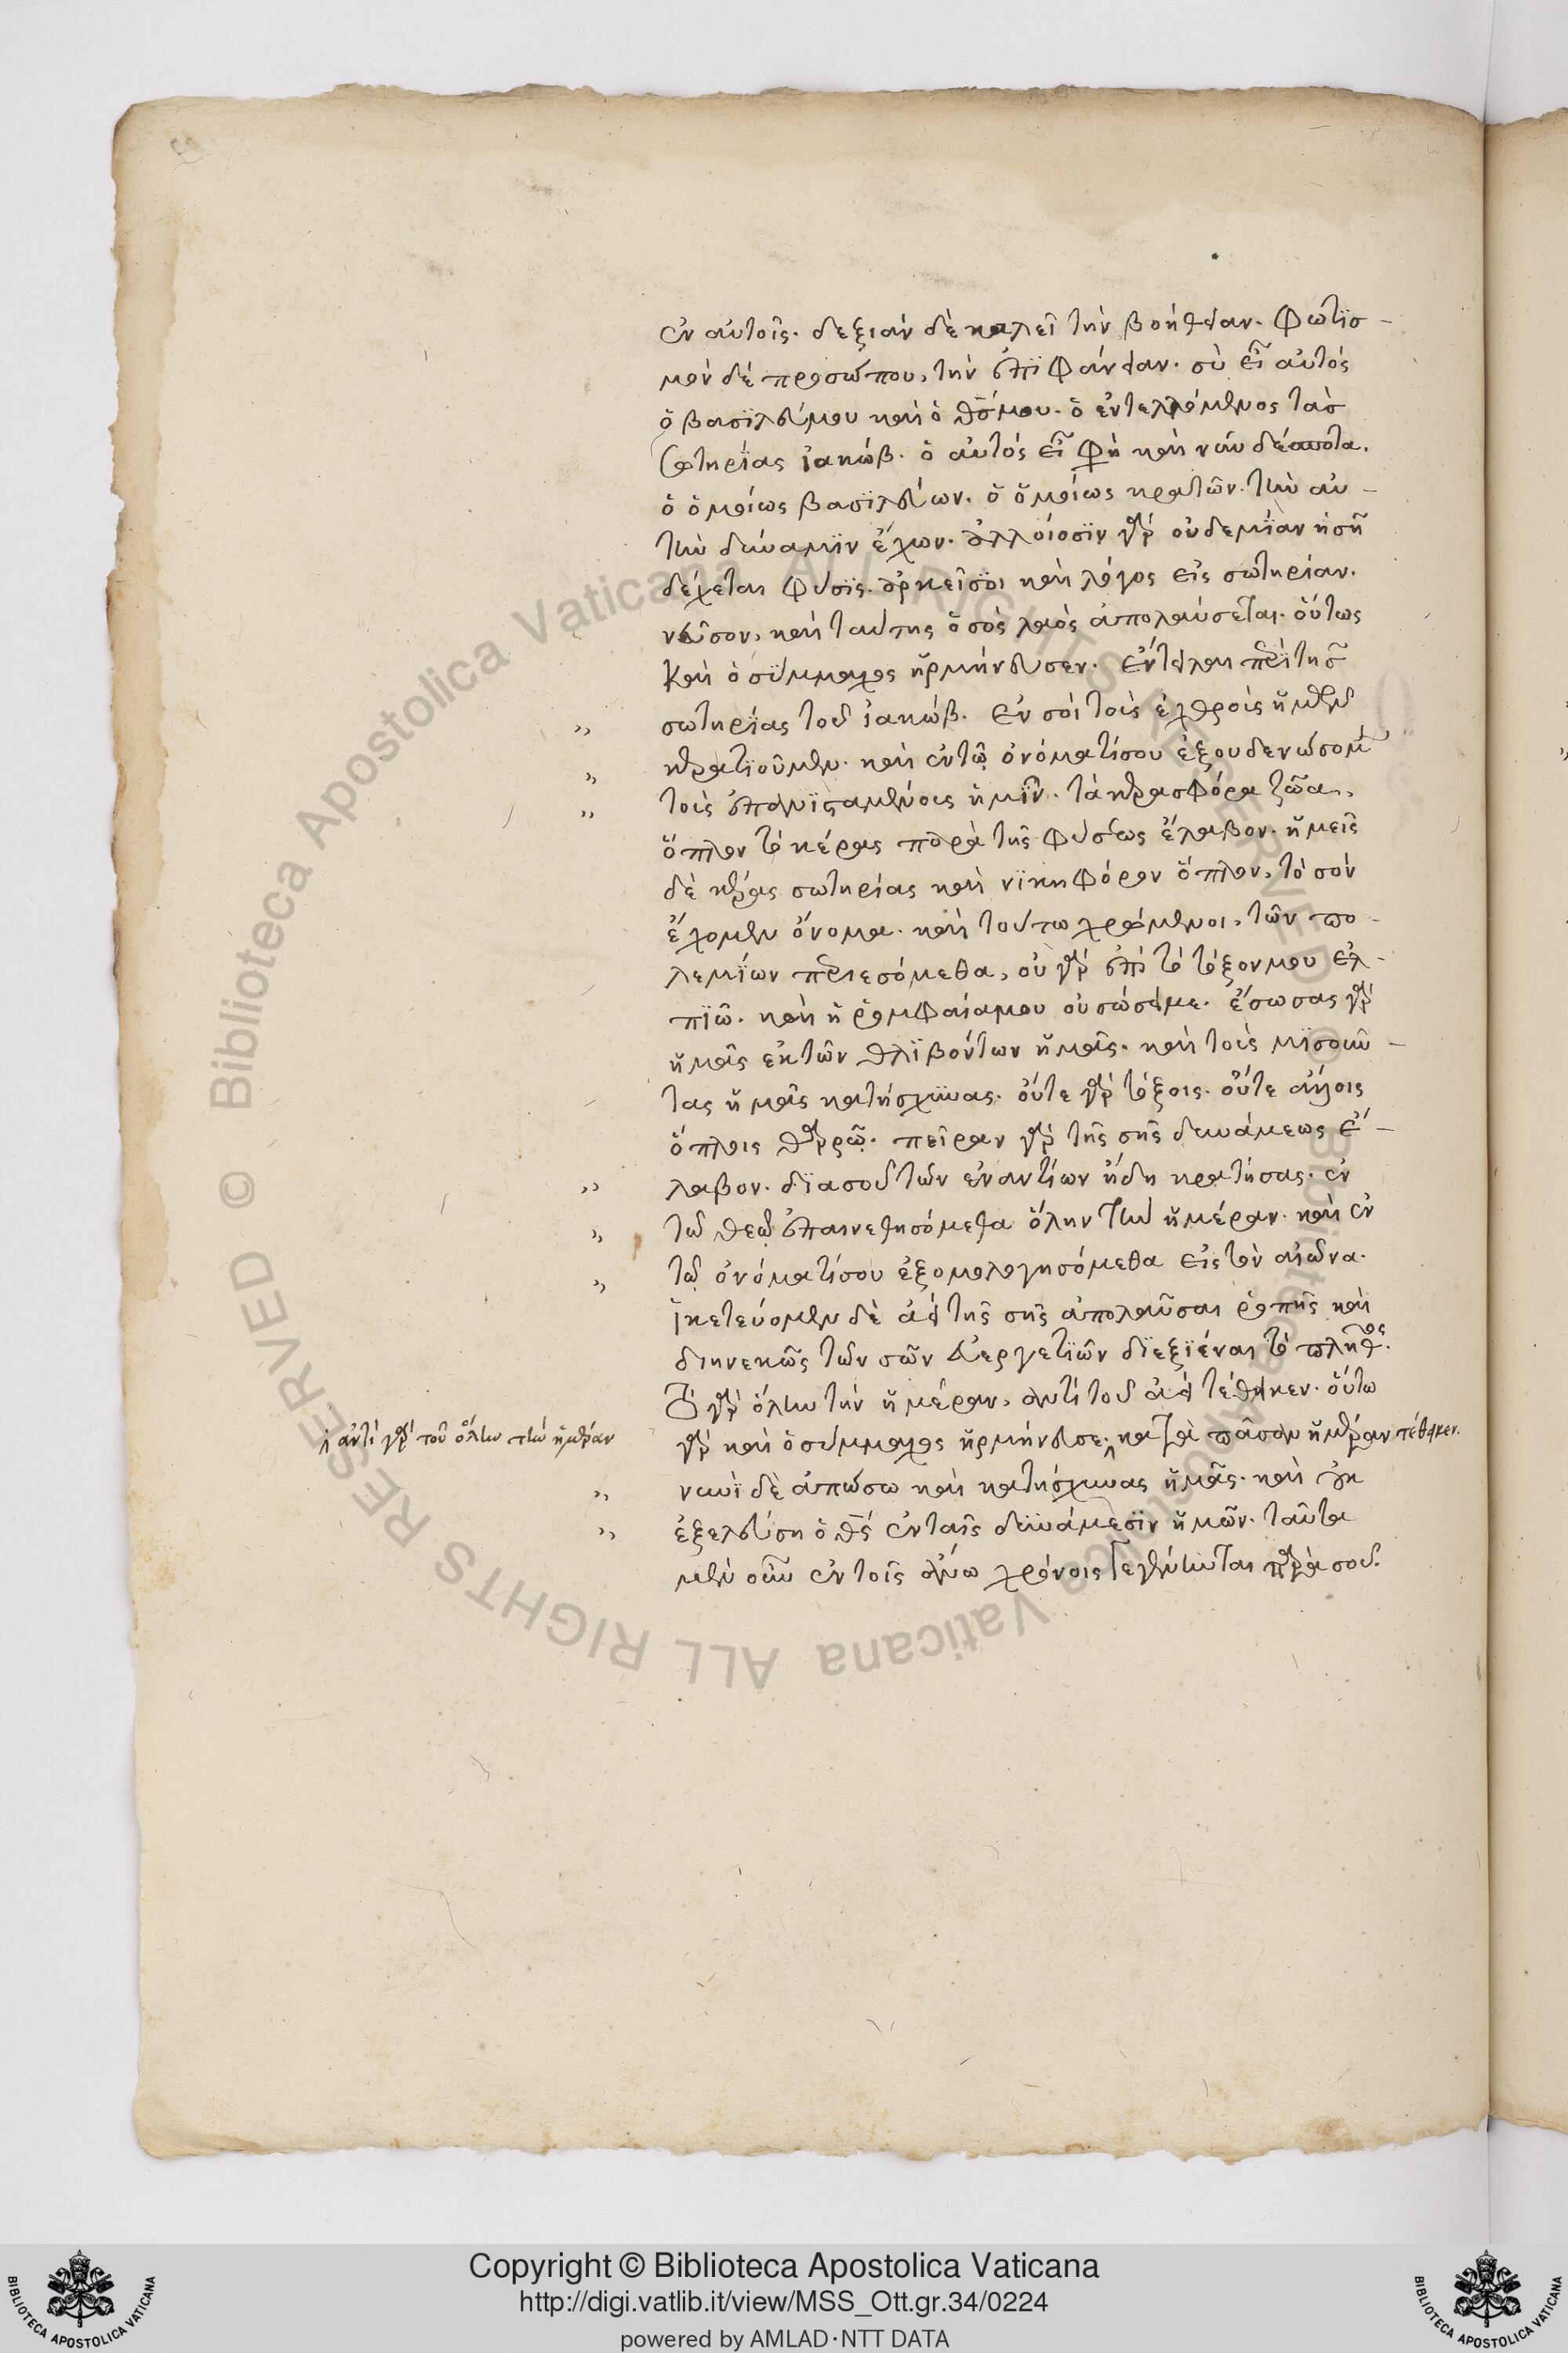 ἐν αὐτοῖς. δεξιὰν δὲ καλεῖ τὴν βοήθειαν. φωτισ-
μὸν δὲ προσώπου, τὴν ἐπιφάνειαν. σὺ εἶ αὐτὸς
ὁ βασιλεύς μου καὶ ὁ θς μου. ὁ ἐντελλόμενος τὰς
σωτηρίας ἰακώβ. ὁ αὐτὸς εἶ φη καὶ νῦν δέσποτα.
ὁ ὁμοίως βασιλεύων. ὁ ὁμοίως κρατῶν. τὴν αὐ-
τὴν δύναμιν ἔχων. ἀλλοίοσιν γὰρ οὐδεμίαν ἡ σὴ
δέχεται φύσις. ἀρκεῖ σοι καὶ λόγος εἰς σωτηρίαν.
νεῦσον, καὶ ταύτης ὁ σὸς λαὸς ἀπολαύσεται. οὕτως
καὶ ὁ σύμμαχος ἡρμήνευσεν. ἔντειλαι περὶ τῆς
σωτηρίας τοῦ ἰακώβ. ἐν σοὶ τοὺς ἐχθροὺς ἡμῶν
κερατιοῦμεν. καὶ ἐν τῷ ὀνόματί σου ἐξουδενώσομεν
τοὺς ἐπανισταμένους ἡμῖν. τὰ κερασφόρα ζῶα,
ὅπλον τὸ κέρας παρὰ τῆς φύσεως ἔλαβον. ἡμεῖς
δὲ κέρας σωτηρίας καὶ νικηφόρον ὅπλον, τὸ σὸν
ἔχομεν ὄνομα. καὶ τούτω χρώμενοι, τῶν πο-
λεμίων περιεσόμεθα, οὐ γὰρ ἐπὶ τὸ τόξον μου ἐλ-
πιῶ. καὶ ἡ ῥομφαία μου οὐ σώσει με. ἔσωσας γὰρ
ἡμᾶς ἐκ τῶν θλιβόντων ἡμᾶς. καὶ τοὺς μισοῦν-
τας ἡμᾶς κατήσχυνας. οὔτε γὰρ τόξοις. οὔτε ἄλλοις
ὅπλοις θαρρῶ. πεῖραν γὰρ τῆς σῆς δυνάμεως ἔ-
λαβον. διὰ σοῦ τῶν ἐναντίων ἤδη κρατήσας. ἐν
τῶ θεῶ ἐπαινεθησόμεθα ὅλην τὴν ἡμέραν. καὶ ἐν
τῶ ὀνόματί σου ἐξομολογησόμεθα εἰς τὸν αἰῶνα.
ἱκετεύομεν δὲ ἀεὶ τῆς σῆς ἀπολαῦσαι ῥοπῆς καὶ
διηνεκῶς τῶν σῶν εὐεργετιῶν διεξιέναι τὸ πλῆθος.
Τὸ γὰρ ὅλην τὴν ἡμέραν, ἀντὶ τοῦ ἀεὶ τέθηκεν. οὕτω
γὰρ καὶ ὁ σύμμαχος ἡρμήνευσε. κατὰ πᾶσαν ἡμέραν τέθεικεν.
ἀντὶ γὰρ τοῦ ὅλην τὴν ἡμέραν
νυνὶ δὲ ἀπώσω καὶ κατήσχυνας ἡμᾶς. καὶ οὐκ
ἐξελεύση ὁ θς ἐν ταῖς δυνάμεσιν ἡμῶν. ταῦτα
μὲν οὖν ἐν τοῖς ἄνω χρόνοις γεγένηται παρὰ σοῦ.
Copyright © Biblioteca Apostolica Vaticana
http://digi.vatlib.it/view/MSS_Ott.gr.34/0224
powered by AMLAD·NTT DATA
BIBLIOTECA APOSTOLICA VATICANA
BIBLIOTECA APOSTOLICA VATICANA
Biblioteca Apostolica Vaticana ALL RIGHTS RESERVED © Biblioteca Apostolica Vaticana ALL RIGHTS RESERVED ©